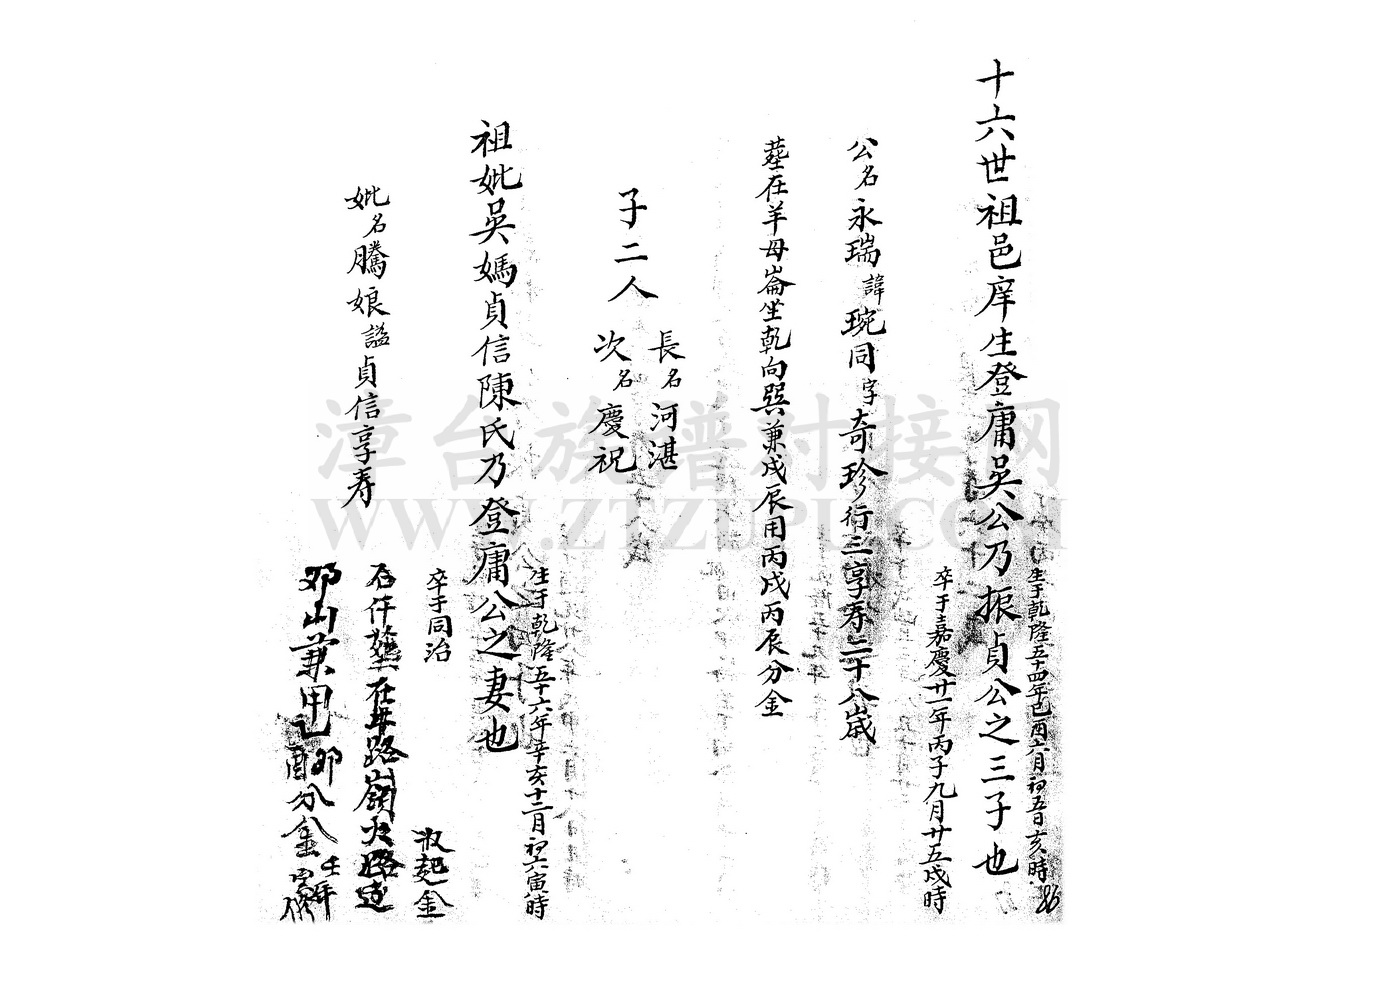 十六世祖邑庠生登庸吳公乃振貞公之三子也
生于乾隆五十四年己酉六月初五日亥時
卒于嘉慶廿一年丙子九月廿五戌時
公名永瑞諱琬同字奇珍行三享寿二十八歲
塟在羊母崙坐乾向巽兼戌辰用丙戌丙辰分金
子二人
長名河湛
次名慶祝
祖妣吳媽貞信陳氏乃登庸公之妻也
生于乾隆五十六年辛亥十二月初六寅時
卒于同治
妣名騰娘謚貞信享寿
石仟塟在牛路嶺大路边
卯山兼甲
卯酉分金
86
漳台族谱对接网
WWW.ZTZUPU.COM